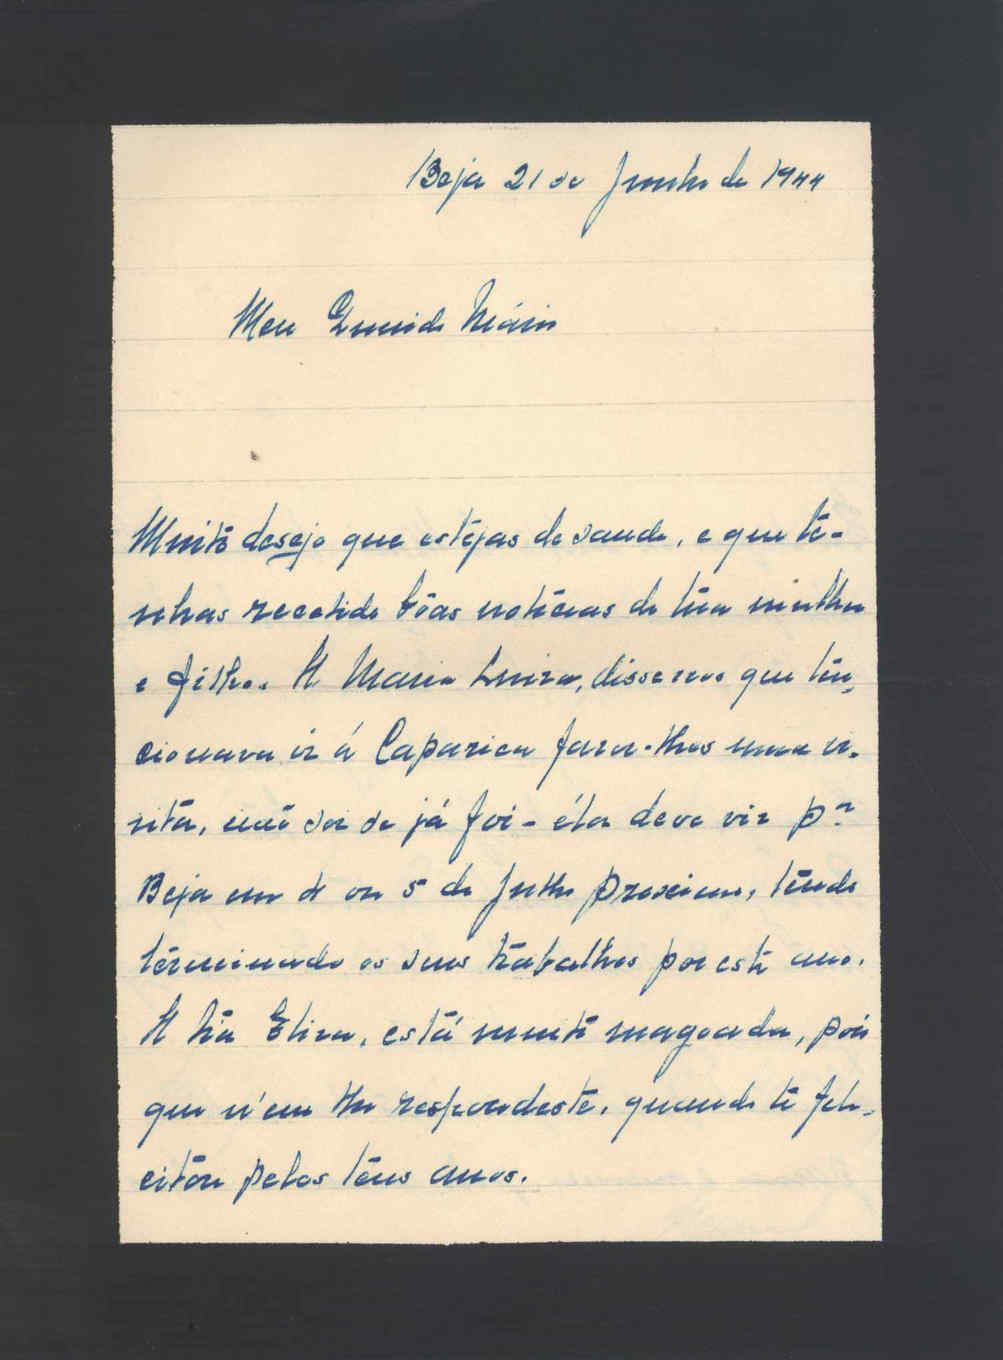 Beja 21 de Junho de 1944
Meu Querido Mário
Muito desejo que estejas de saude, e que te-
nhas recebido bôas noticias de tua mulher
e filho. A Maria Luiza, disse-nos que ten-
cionava ir á Caparica fazer-lhes uma vi-
sita, não sei se já foi - éla deve vir pª
Beja em 4 ou 5 de Julho proximo, tendo
terminado os seus trabalhos por este ano.
A tia Eliza, está muito magoada, pois
que n'em lhe respondeste, quando te feli-
citou pelos teus anos.